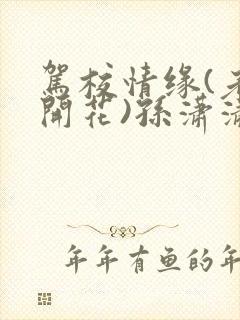 駕校情缘(
開花)孫潇
年年有鱼的年